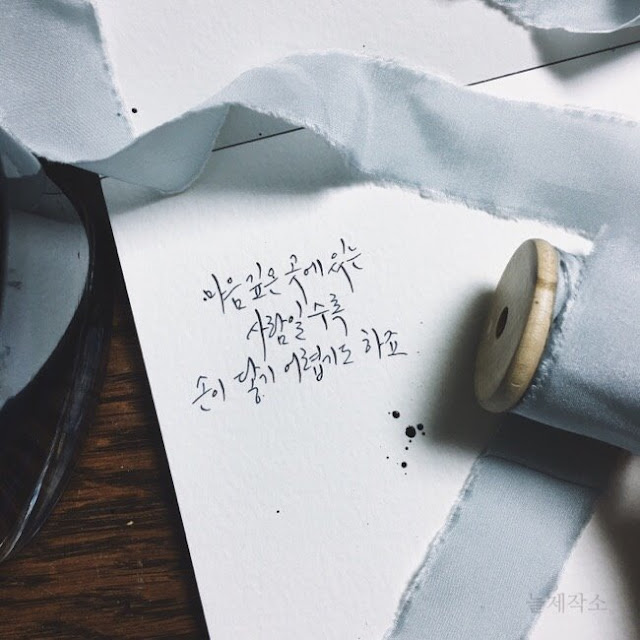 마음 깊은 곳에 있는
사람일수록
손이 닿기 어렵기도 하죠
늘제작소